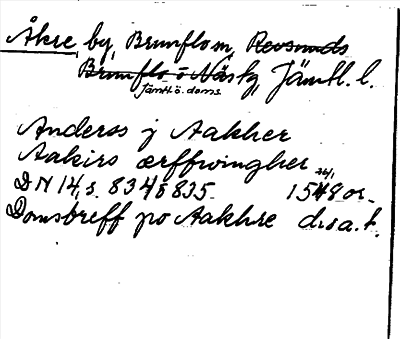 Åkre, by, Brunflo sn, Revsunds
Brunflo o Näs tg, Jämtl. l.
Jämtl. ö. doms.
Anderss j Aakher
Aakirs ærffwingher
24/1
DN 14, s. 834 o 835. 1548 or.
Domsbreff po Aakhre dssa.t.